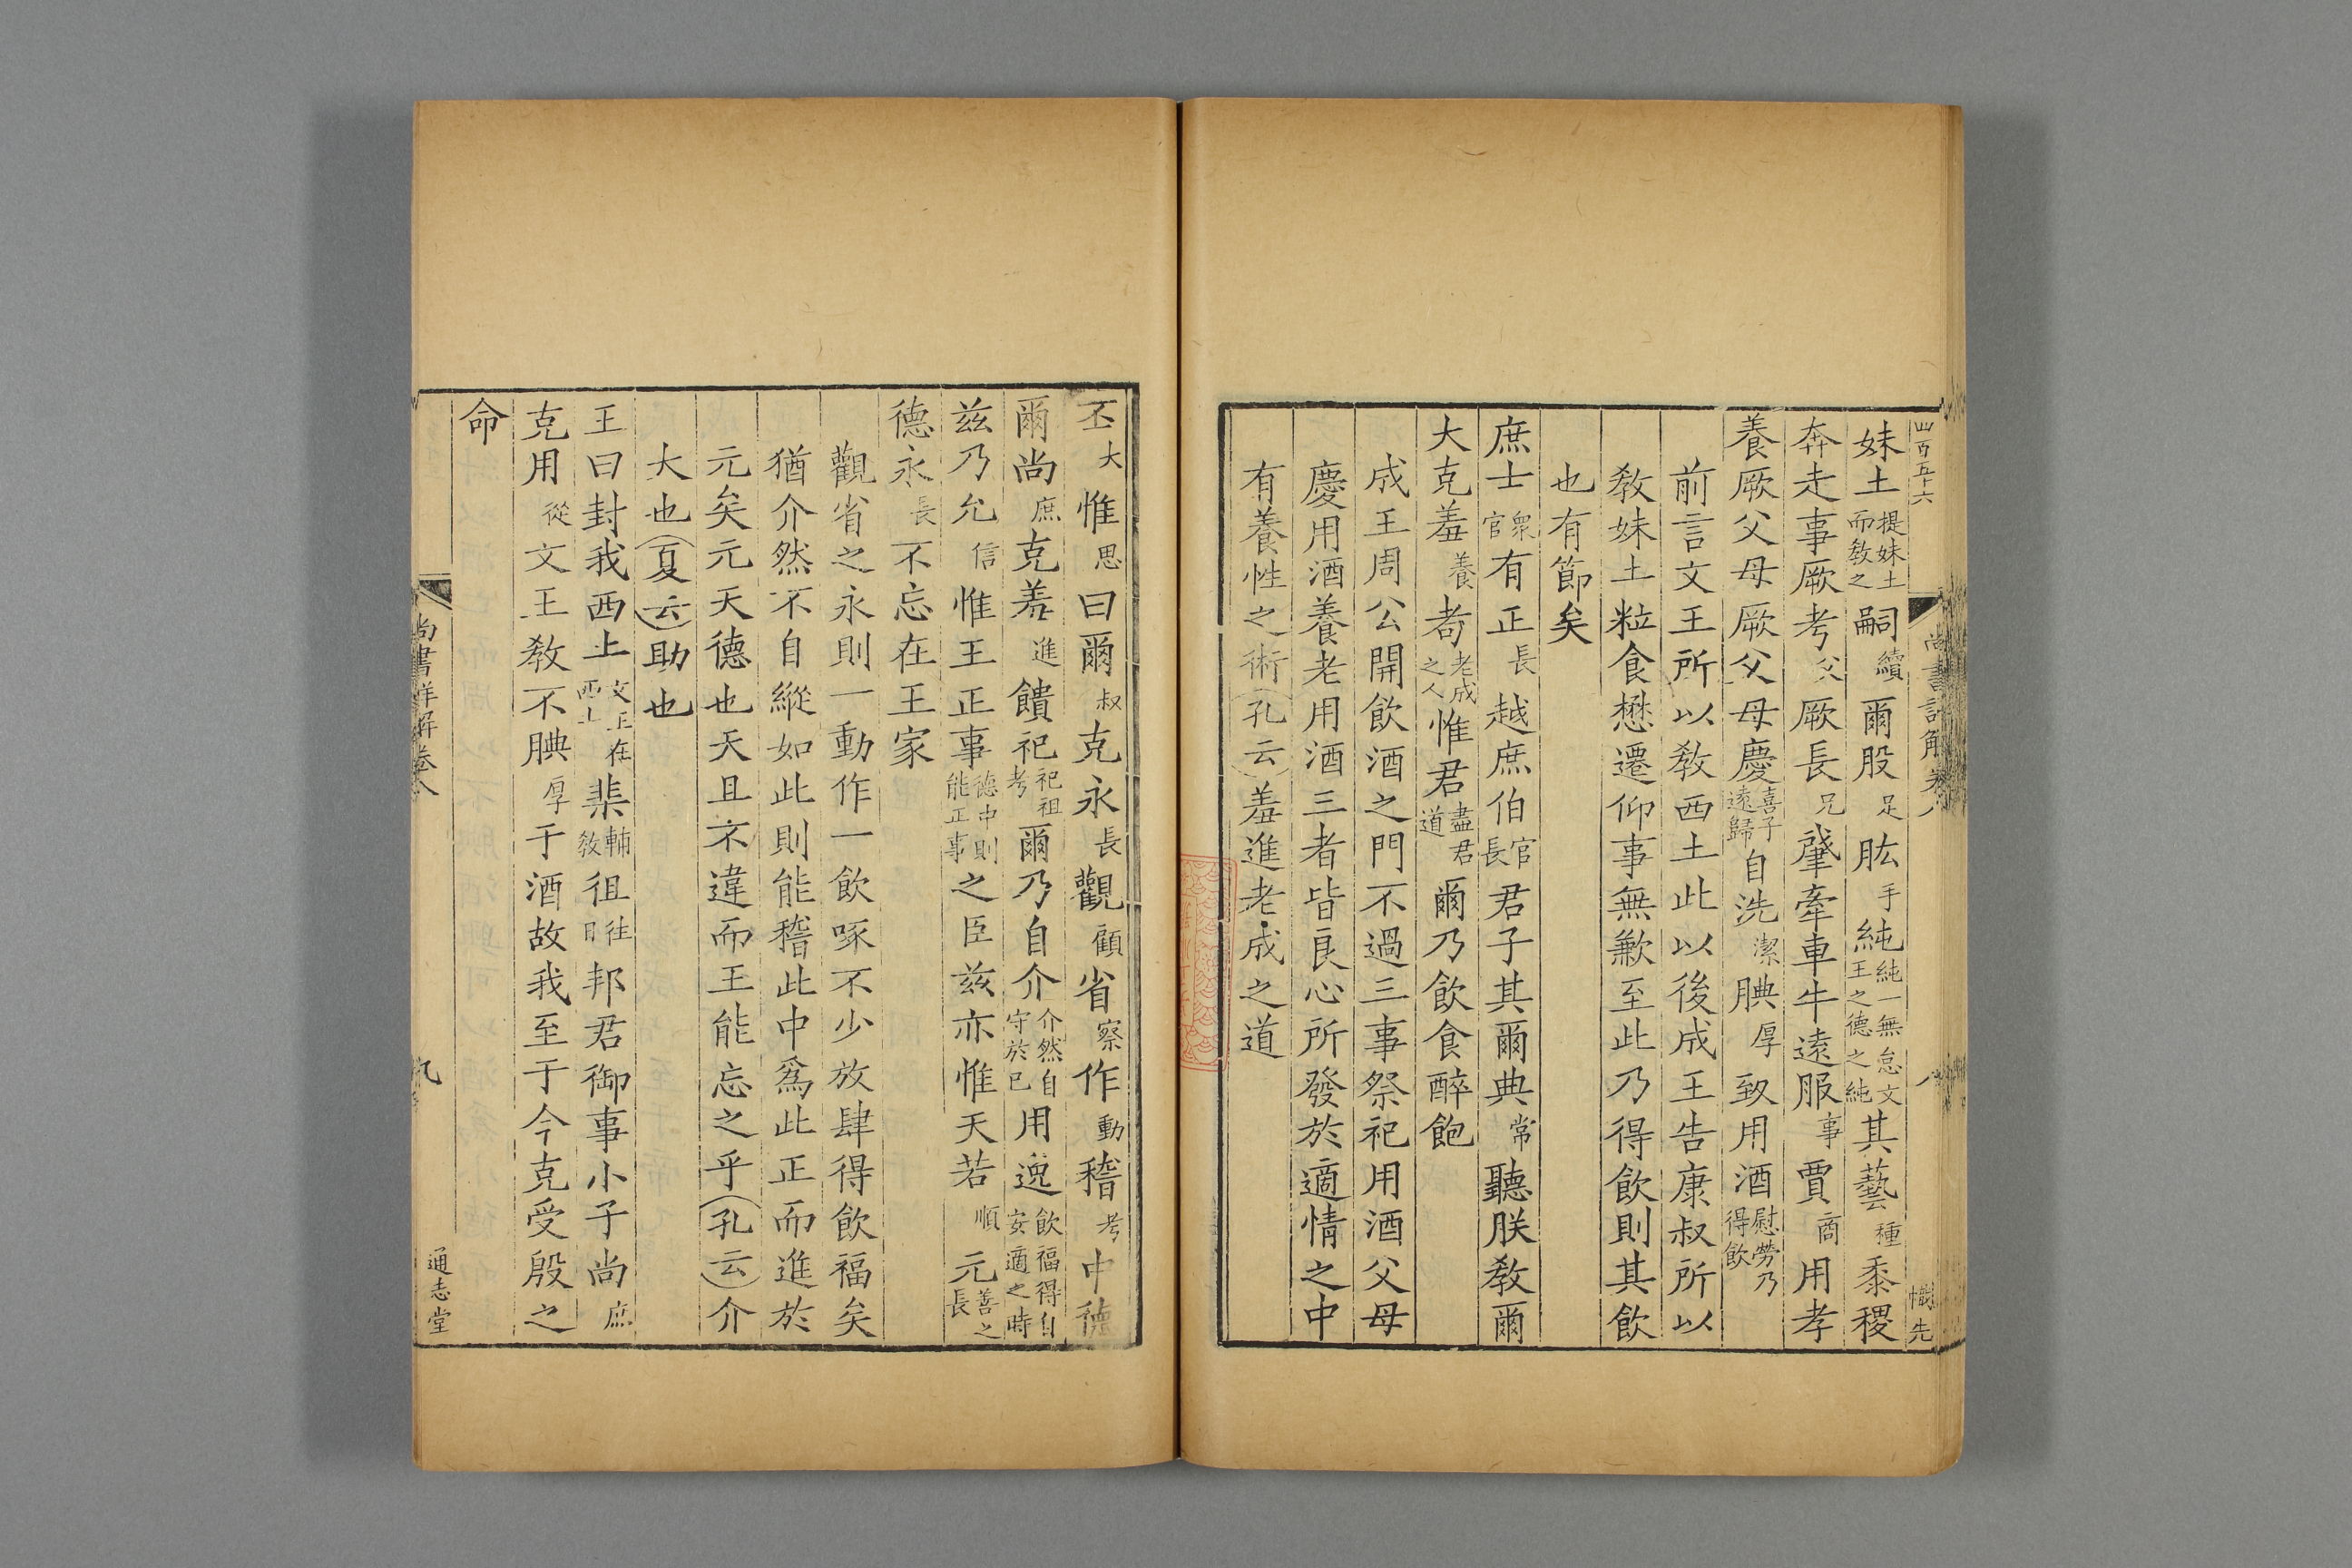 四百五十六 尚書詳解卷八 八
妹土提妹土而敎之嗣續爾股足肱手純純一無怠文王之德之純其藝種黍稷
奔走事厥考父厥長兄肇牽車牛遠服事賈商用孝
養厥父母厥父母慶喜子遠歸自洗潔腆厚致用酒慰勞乃得飲
前言文王所以敎西土此以後成王告康叔所以
敎妹土粒食懋遷仰事無歉至此乃得飲則其飲
也有節矣
庶士衆官有正長越庶伯官長君子其爾典常聽朕敎爾
大克羞養耇老成之人惟君盡君道爾乃飲食醉飽
成王周公開飲酒之門不過三事祭祀用酒父母
慶用酒養老用酒三者皆良心所發於適情之中
有養性之術孔云羞進老成之道
丕大惟思曰爾叔克永長觀顧省察作動稽考中德
爾尚庶克羞進饋祀祀祖考爾乃自介介然自守於已用逸飲福得自安適之時
茲乃允信惟王正事德中則能正事之臣茲亦惟天若順元善之長
德永長不忘在王家
觀省之永則一動作一飲啄不少放肆得飲福矣
猶介然不自縱如此則能稽此中爲此正而進於
元矣元天德也天且不違而王能忘之乎孔云介
大也夏云助也
王曰封我西土文王在西土棐輔敎徂往日邦君御事小子尚庶
克用從文王敎不腆厚于酒故我至于今克受殷之
命
尚書詳解卷八 九 通志堂